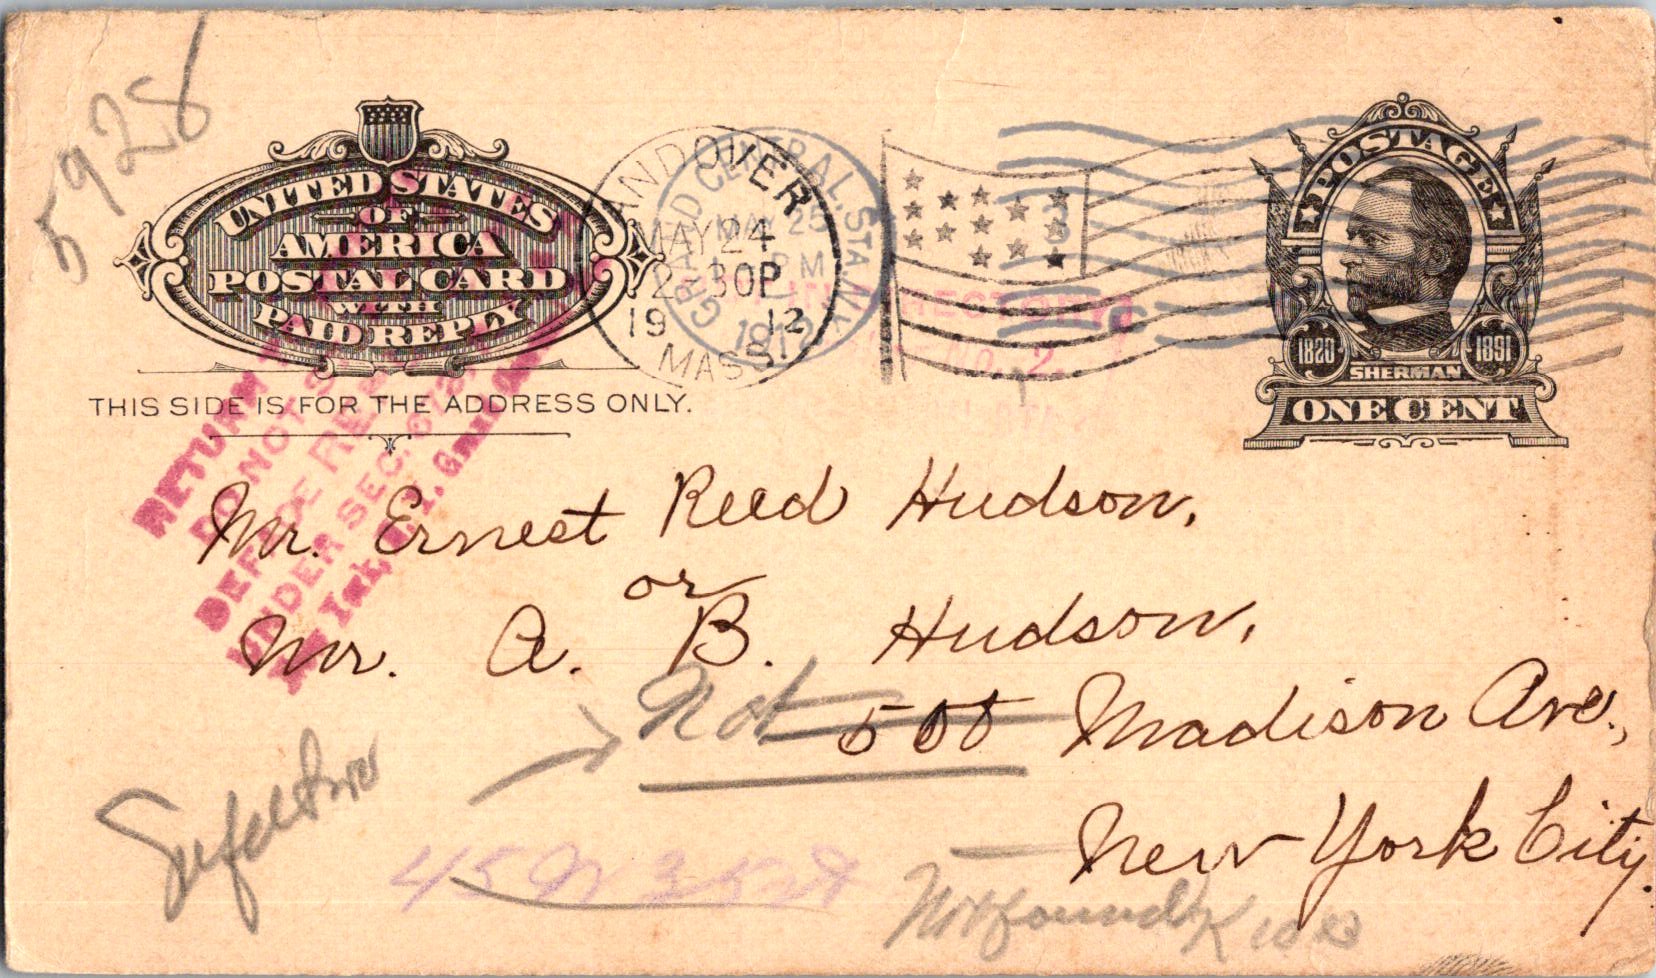 5928
UNITED STATES
OF
AMERICA
POSTAL CARD
WITH
PAID REPLY
THIS SIDE IS FOR THE ADDRESS ONLY.
ANDOVER
MAY 24
2-30P
1912
MASS.
GRAND CENTRAL STA. N.Y.
MAY 25
PM
1912
DIRECTORY
NO. 2.
POSTAGE
1820 1891
SHERMAN
ONE CENT
RETURN
DO NOT
UNDER SEC.
Mr. Ernest Reed Hudson,
or
Mr. A. B. Hudson,
Not 500 Madison Ave.,
New York City.
45 W 35 St
Not found